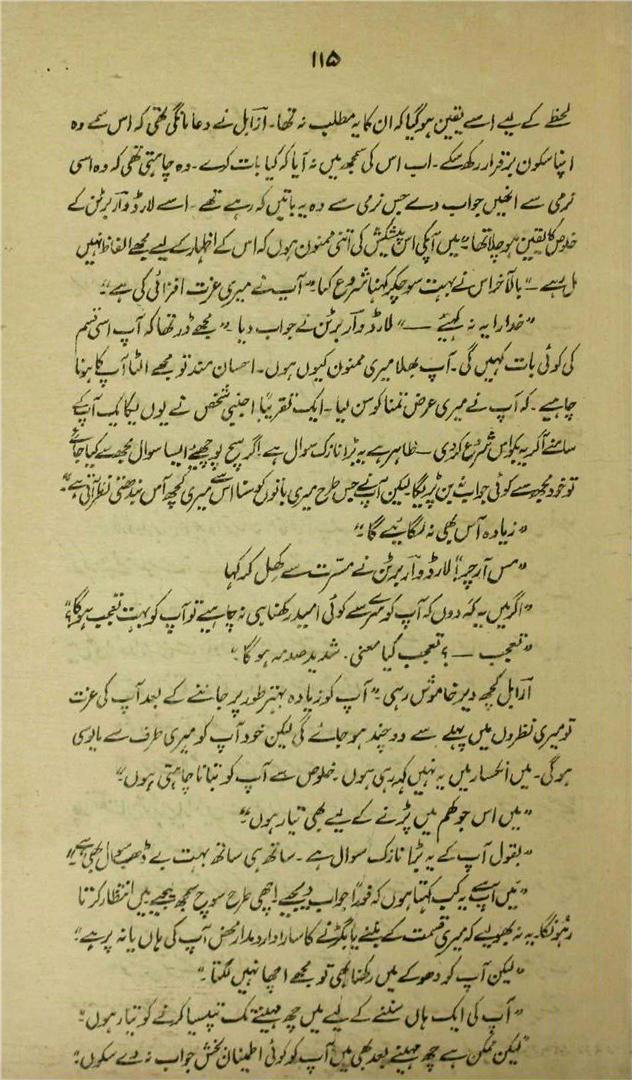 ۱۱۵
لحظے کے لیے اسے یقین ہو گیا کہ ان کا یہ مطلب نہ تھا۔ ازابل نے دعا مانگی تھی کہ اس سمے وہ
اپنا سکون برقرار رکھ سکے۔ اب اس کی سمجھ میں نہ آیا کہ کیا بات کرے۔ وہ چاہتی تھی کہ وہ اسی
نرمی سے انھیں جواب دے جس نرمی سے وہ یہ باتیں کہہ رہے تھے۔ اسے لارڈ وآربرٹن کے
خلوص کا یقین ہو چلا تھا "میں آپکی اس پیشکش کی اتنی ممنون ہوں کہ اس کے اظہار کے لیے مجھے الفاظ نہیں
مل رہے۔" بالآخر اس نے بہت سوچکر کہنا شروع کیا۔ "آپ نے میری عزت افزائی کی ہے"
"خدارا یہ نہ کہیئے —" لارڈ وآربرٹن نے جواب دیا۔ "مجھے ڈر تھا کہ آپ اسی قسم
کی کوئی بات کہیں گی۔ آپ بھلا میری ممنون کیوں ہوں۔ احسان مند تو مجھے الٹا آپ کا ہونا
چاہیے۔ کہ آپ نے میری عرض تمنا کو سن لیا۔ ایک تقریباً اجنبی شخص نے یوں یکایک آپ کے
سامنے آکر یہ بکواس شروع کر دی۔ ظاہر ہے یہ بڑا نازک سوال ہے اگر سچ پوچھیئے ایسا سوال مجھ سے کیا جائے
تو خود مجھ سے کوئی جواب نہ بن پڑیگا لیکن آپ نے جس طرح میری باتوں کو سنا اس سے میری کچھ آس بندھتی نظر آتی ہے"
"زیادہ آس بھی نہ لگائیے گا۔"
"مس آرچر" لارڈ وآربرٹن نے مسرت سے کھل کر کہا
"اگر میں یہ کہہ دوں کہ آپ کو سرے سے کوئی امید رکھنا ہی نہ چاہیے تو آپ کو بہت تعجب ہو گا؟"
"تعجب —؟ تعجب کیا معنی۔ شدید صدمہ ہو گا۔"
ازابل کچھ دیر خاموش رہی۔ "آپ کو زیادہ بہتر طور پر جاننے کے بعد آپ کی عزت
تو میری نظروں میں پہلے سے دو چند ہو جائے گی لیکن خود آپ کو میری طرف سے مایوسی
ہو گی۔ میں انکسار میں یہ نہیں کہہ رہی ہوں۔ خلوص سے آپ کو بتانا چاہتی ہوں"
"میں اس جوکھم میں پڑنے کے لیے بھی تیار ہوں"
"بقول آپ کے یہ بڑا نازک سوال ہے۔ ساتھ ہی ساتھ بہت بے ڈھب سوال بھی ہے"
"میں آپ سے یہ کب کہتا ہوں کہ فوراً جواب دیجیے اچھی طرح سوچ سمجھ لیجیے میں انتظار کرتا
رہونگا یہ نہ بھولیے کہ میری قسمت کے بننے یا بگڑنے کا سارا دارومدار محض آپ کی ہاں یا نہ پر ہے"
"لیکن آپ کو دھوکے میں رکھنا بھی تو مجھے اچھا نہیں لگتا۔"
"آپ کی ایک ہاں سننے کے لیے میں چھ مہینے تک تپسیا کرنے کو تیار ہوں۔"
"لیکن ممکن ہے چھ مہینے بعد بھی میں آپ کو کوئی اطمینان بخش جواب نہ دے سکوں۔"